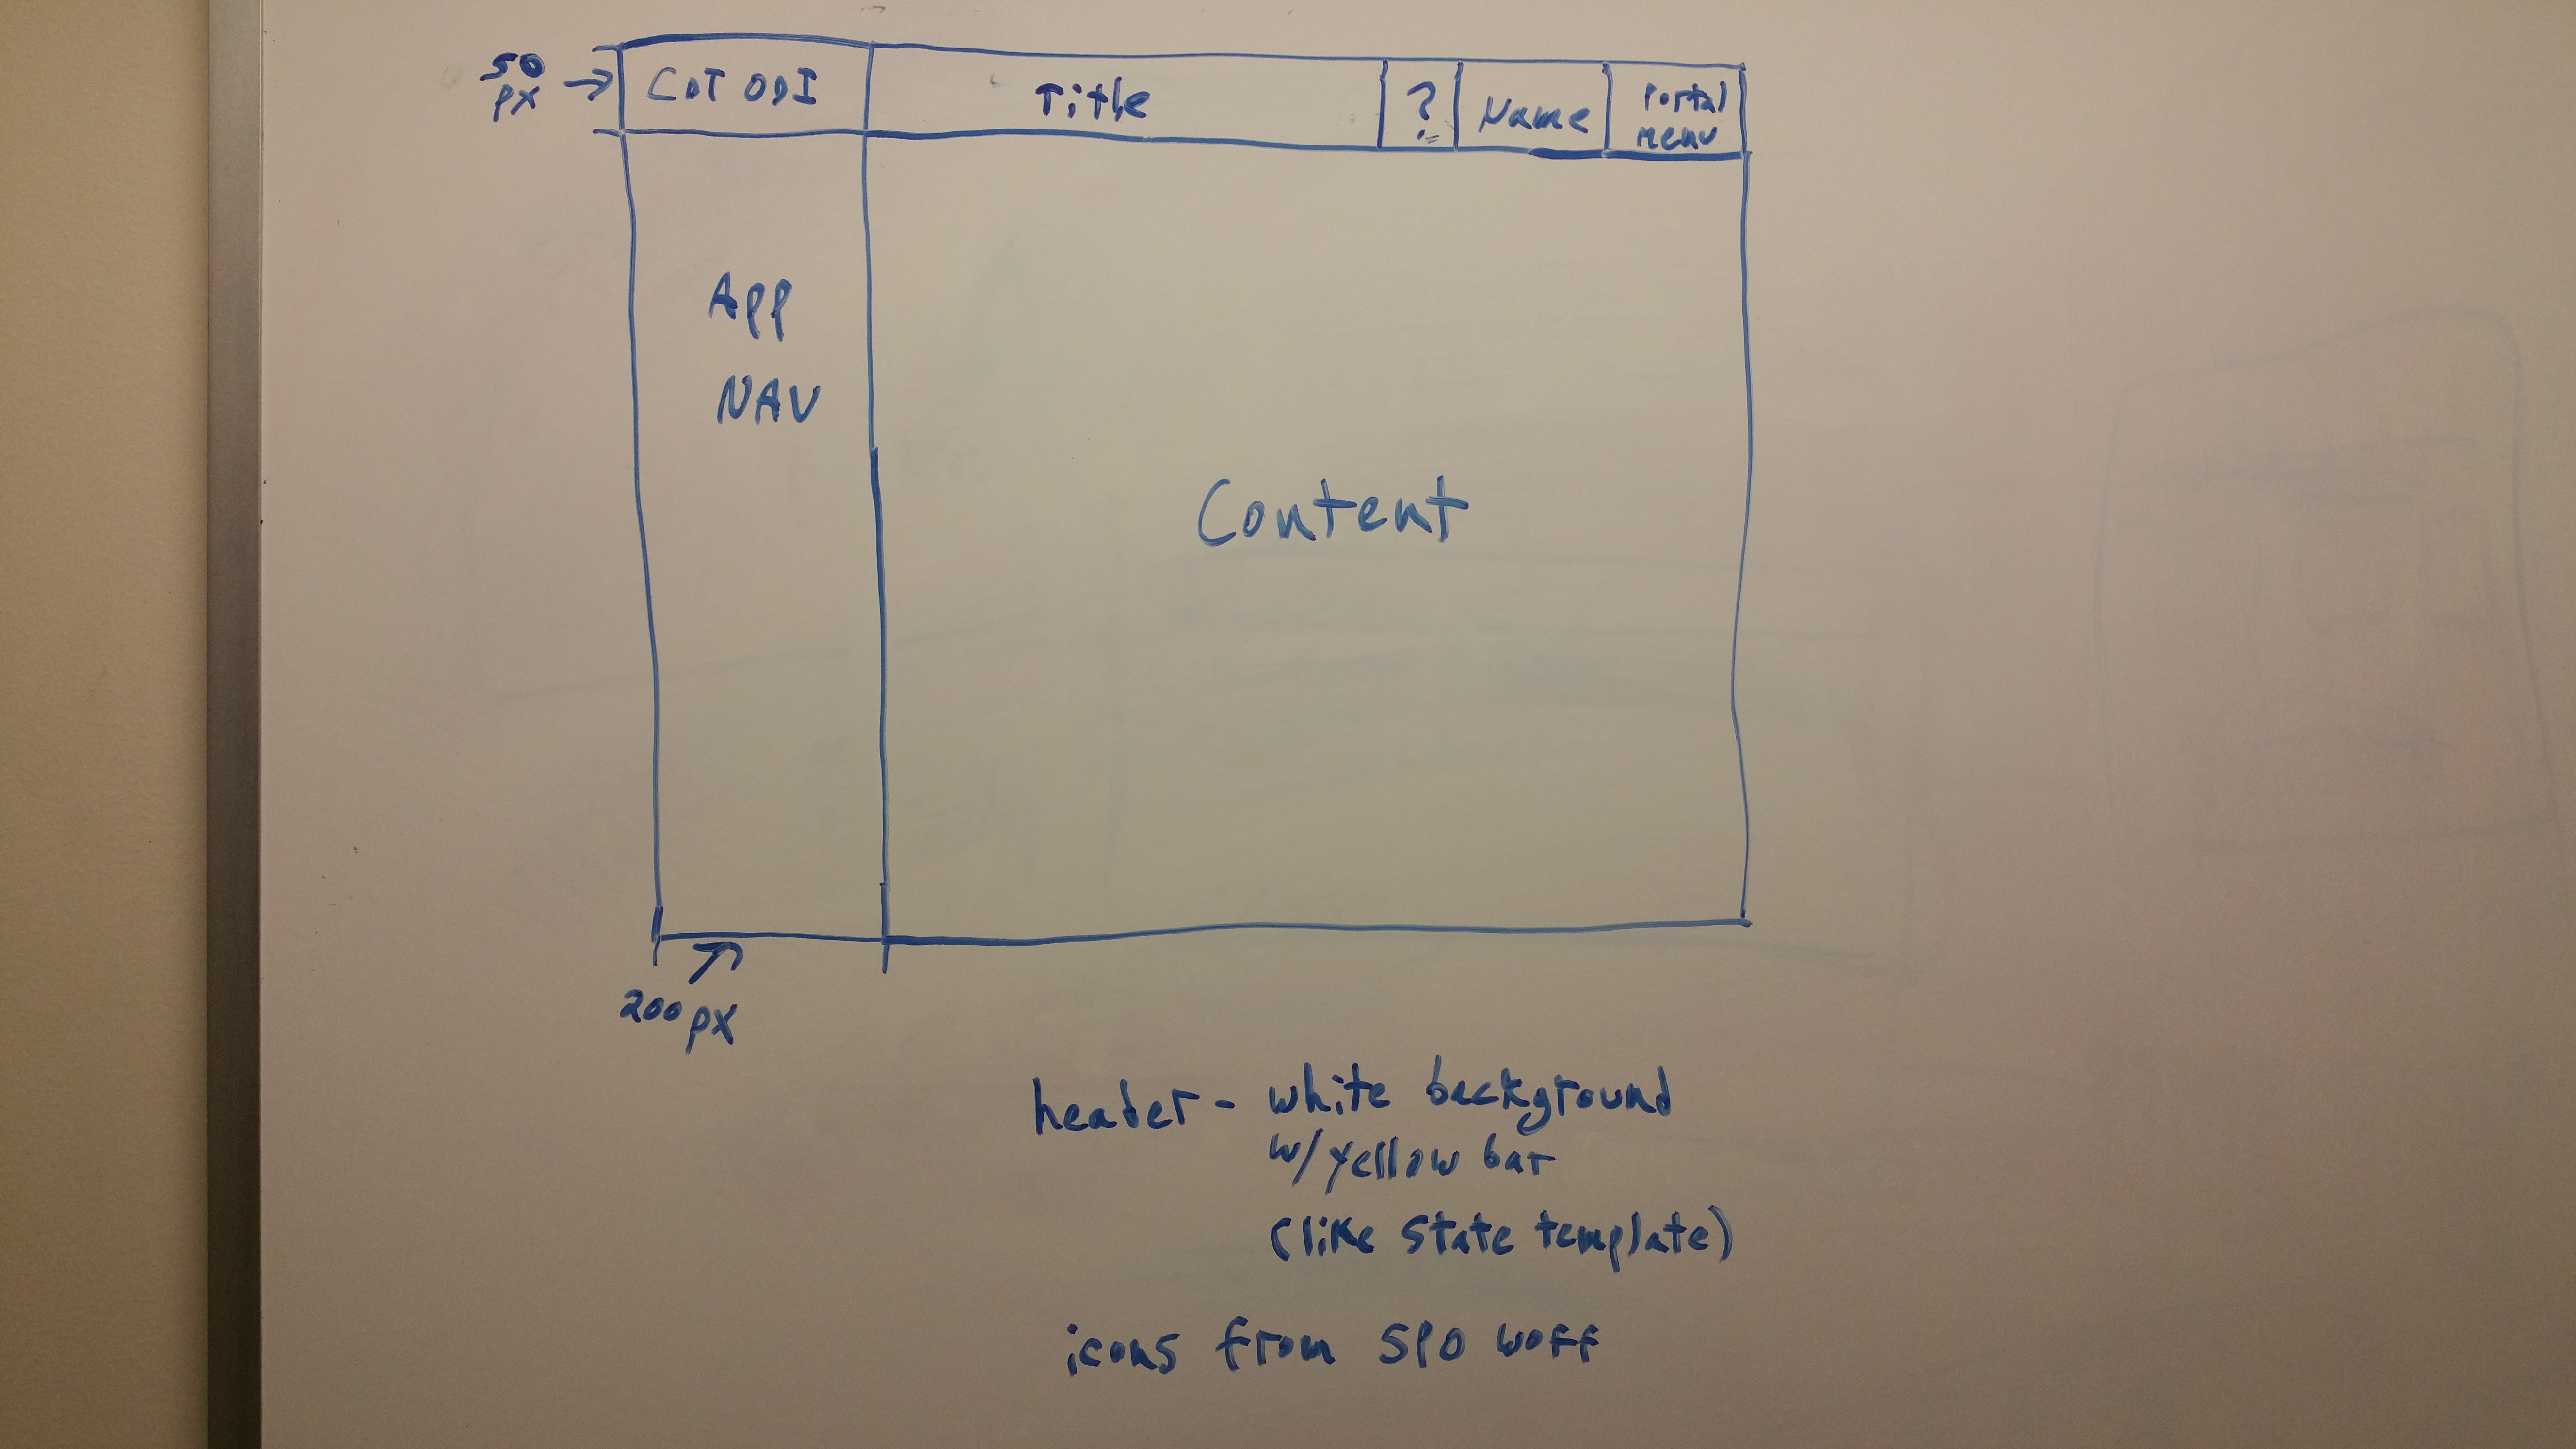 50
px
CDT ODI
Title
?
Name
Portal
menu
App
NAV
Content
200px
header - white background
w/yellow bar
(like State template)
icons from SPO woff